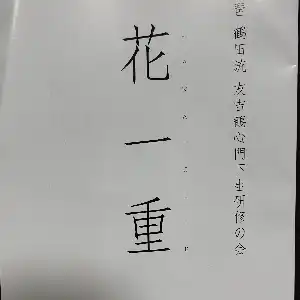 鶴田流 友吉鶴心門下生研修の会
花一重